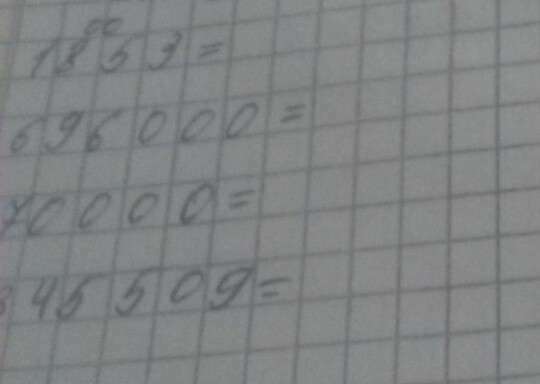 1853=
696000=
70000=
845509=